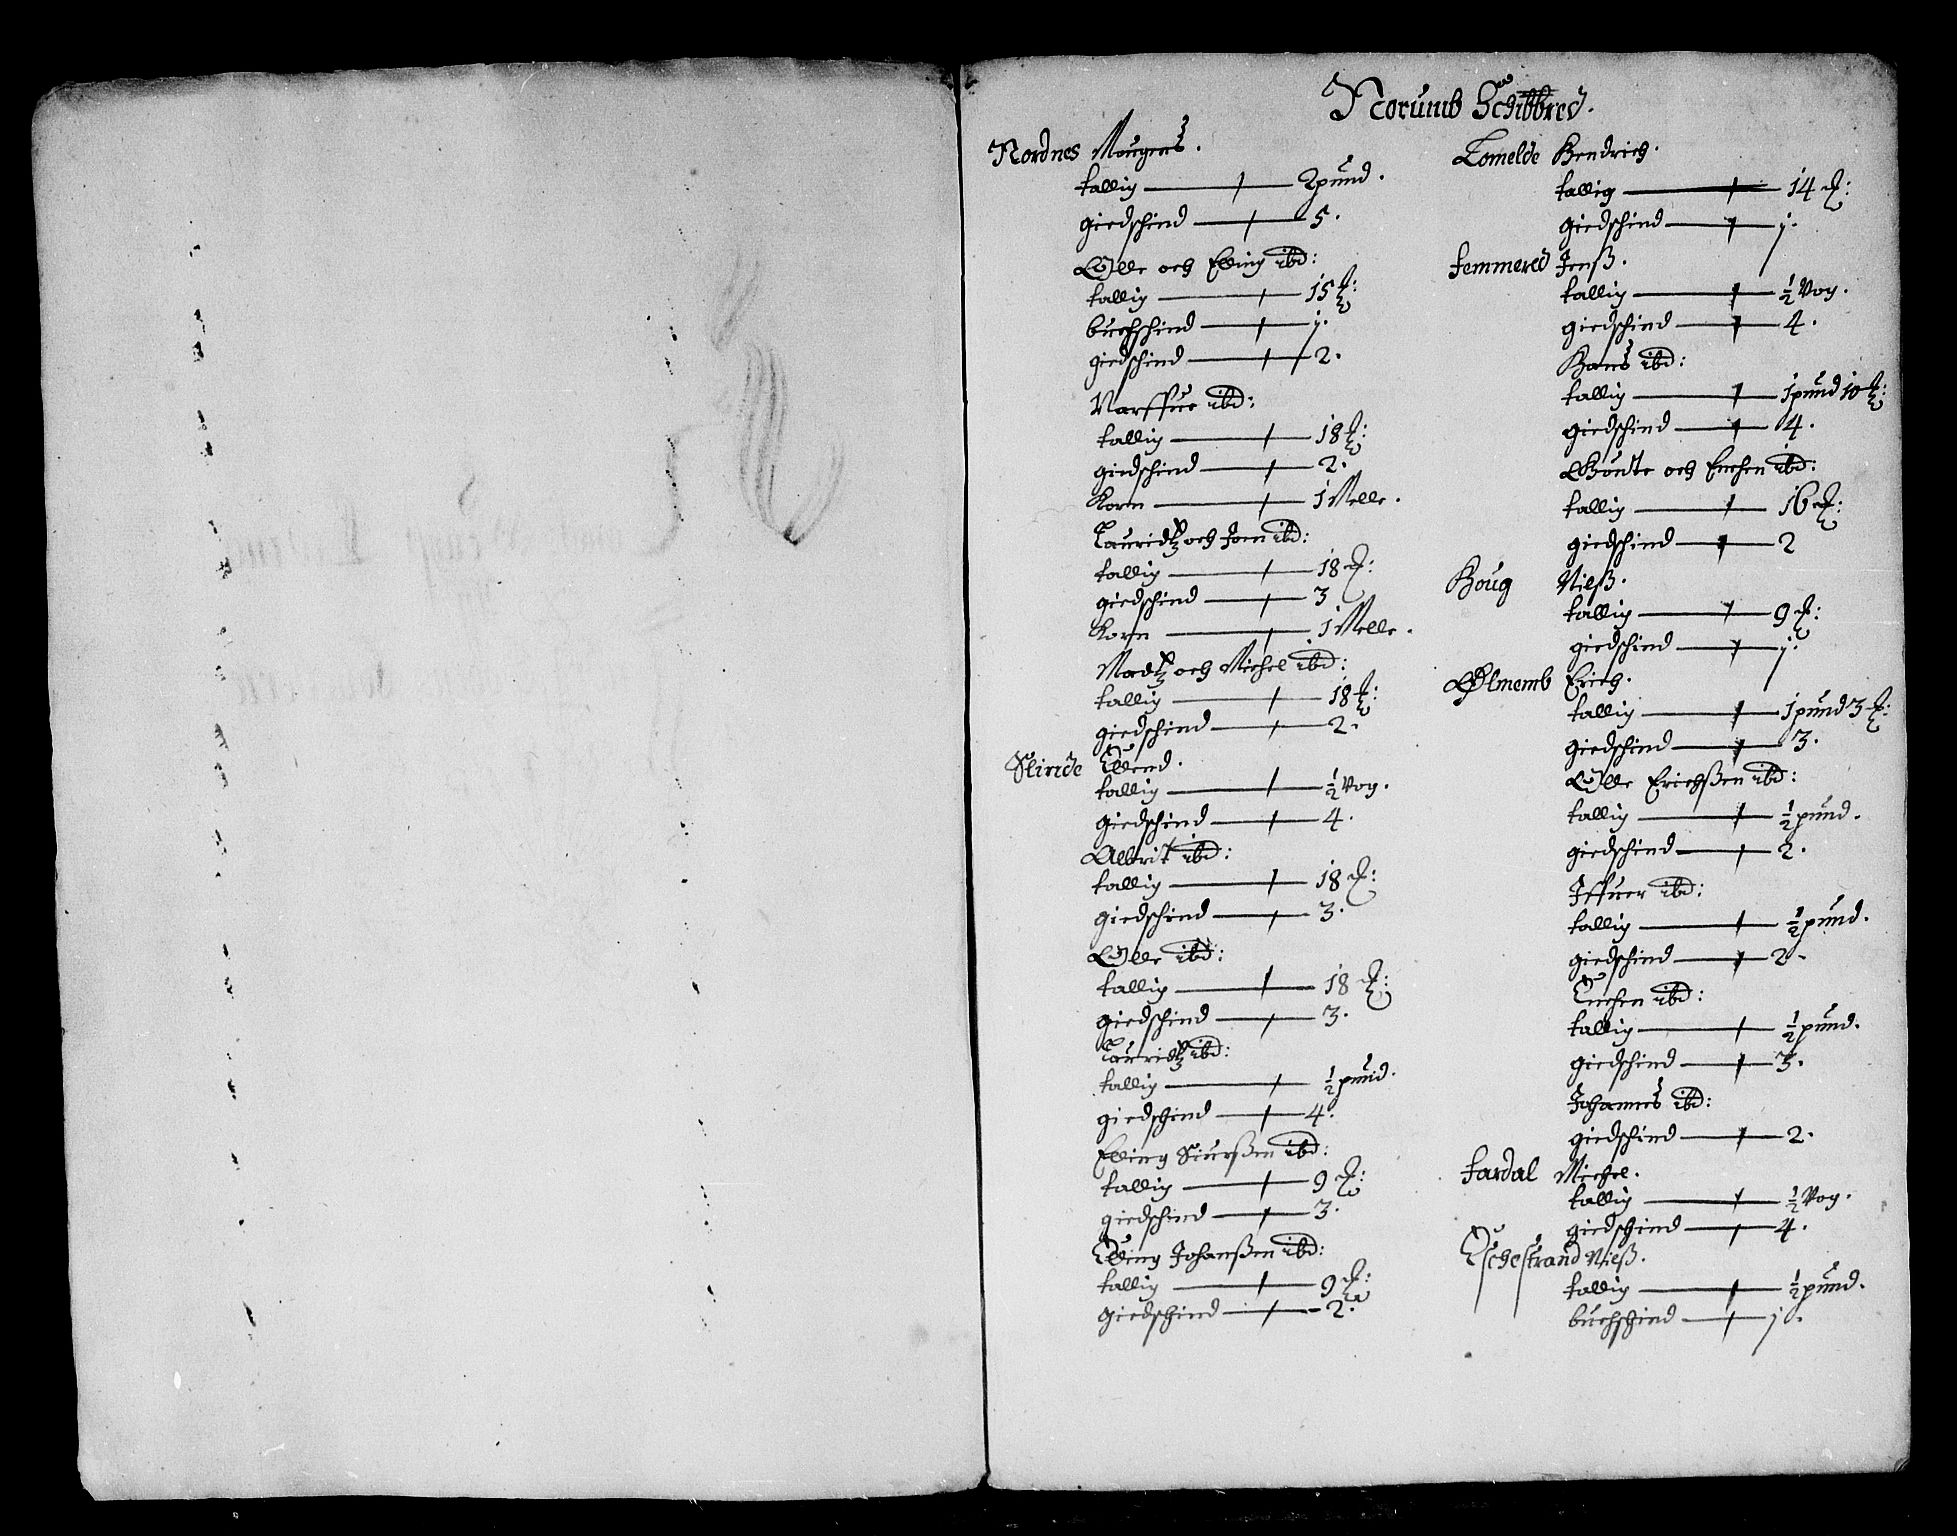 Norumb Schibbred.
Nordnes Mougens.
tallig — 2 pund.
giedschind — 5.
Olle och Elling ibd:
tallig — 15 ℔:
buchschind — 1.
giedschind — 2.
Narffue ibd:
tallig — 18 ℔:
giedschind — 2.
Korn — 1 Melle.
Lauridtz och Jon ibd:
tallig — 18 ℔:
giedschind — 3
Korn — 1 Melle.
Madtz och Michel ibd:
tallig — 18 ℔:
giedschind — 2.
Slinde Ellend.
tallig — ½ Vog.
giedschind — 4.
Albrit ibd:
tallig — 18 ℔:
giedschind — 3.
Olle ibd:
tallig — 18 ℔:
giedschind — 3.
Lauridtz ibd:
tallig — ½ pund.
giedschind — 4.
Elling Siurßen ibd:
tallig — 9 ℔:
giedschind — 3.
Elling Johanßen ibd:
tallig — 9 ℔:
giedschind — 2.
Lomelde Hendrich.
tallig — 14 ℔:
giedschind — 1.
Jemmered Jenß.
tallig — ½ Vog.
giedschind — 4.
Hans ibd:
tallig — 1 pund 10 ℔:
giedschind — 4.
och Enchen ibd:
tallig — 16 ℔:
giedschind — 2
Houg Nielß.
tallig — 9 ℔:
giedschind — 1.
Ølmemb Erich.
tallig — 1 pund 3 ℔:
giedschind — 3.
Olle Erichßen ibd:
tallig — ½ pund.
giedschind — 2.
Iffuer ibd:
tallig — ½ pund.
giedschind — 2.
Enchen ibd:
tallig — ½ pund.
giedschind — 3.
Johannes ibd:
giedschind — 2.
Fardal Michel.
tallig — ½ Vog.
giedschind — 4.
Eschestrand Nielß.
tallig — ½ pund.
buchschind — 1.